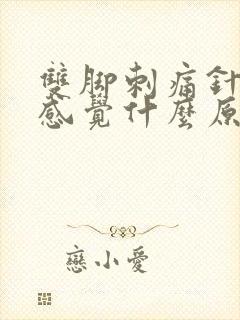 雙腳刺痛針
感覺什麼原
戀小愛